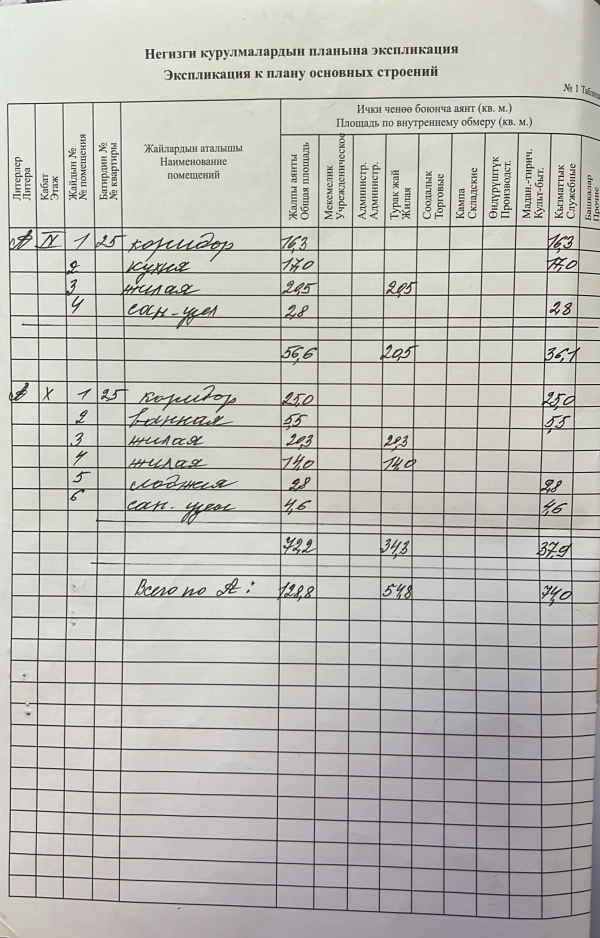 Негизги курулмалардын планына экспликация
Экспликация к плану основных строений
№ 1 Таблица
Литерлер Литера
Кабат Этаж
Жайдын № № помещения
Батирдин № № квартиры
Жайлардын аталышы
Наименование
помещений
Ички ченөө боюнча аянт (кв. м.)
Площадь по внутреннему обмеру (кв. м.)
Жалпы аянты Общая площадь
Мекемелик Учрежденическое
Администр. Администр.
Турак жай Жилая
Соодалык Торговые
Кампа Складские
Өндүрүштүк Производст.
Мадан.-тирич. Культ-быт.
Кызматтык Служебные
Башкалар Прочие
А IX 1 25 коридор 16,3 16,3
2 кухня 17,0 17,0
3 жилая 20,5 20,5
4 сан-узел 2,8 2,8
56,6 20,5 36,1
А X 1 25 коридор 25,0 25,0
2 ванная 5,5 5,5
3 жилая 20,3 20,3
4 жилая 14,0 14,0
5 лоджия 2,8 2,8
6 сан-узел 4,6 4,6
72,2 34,3 37,9
Всего по А: 128,8 54,8 74,0